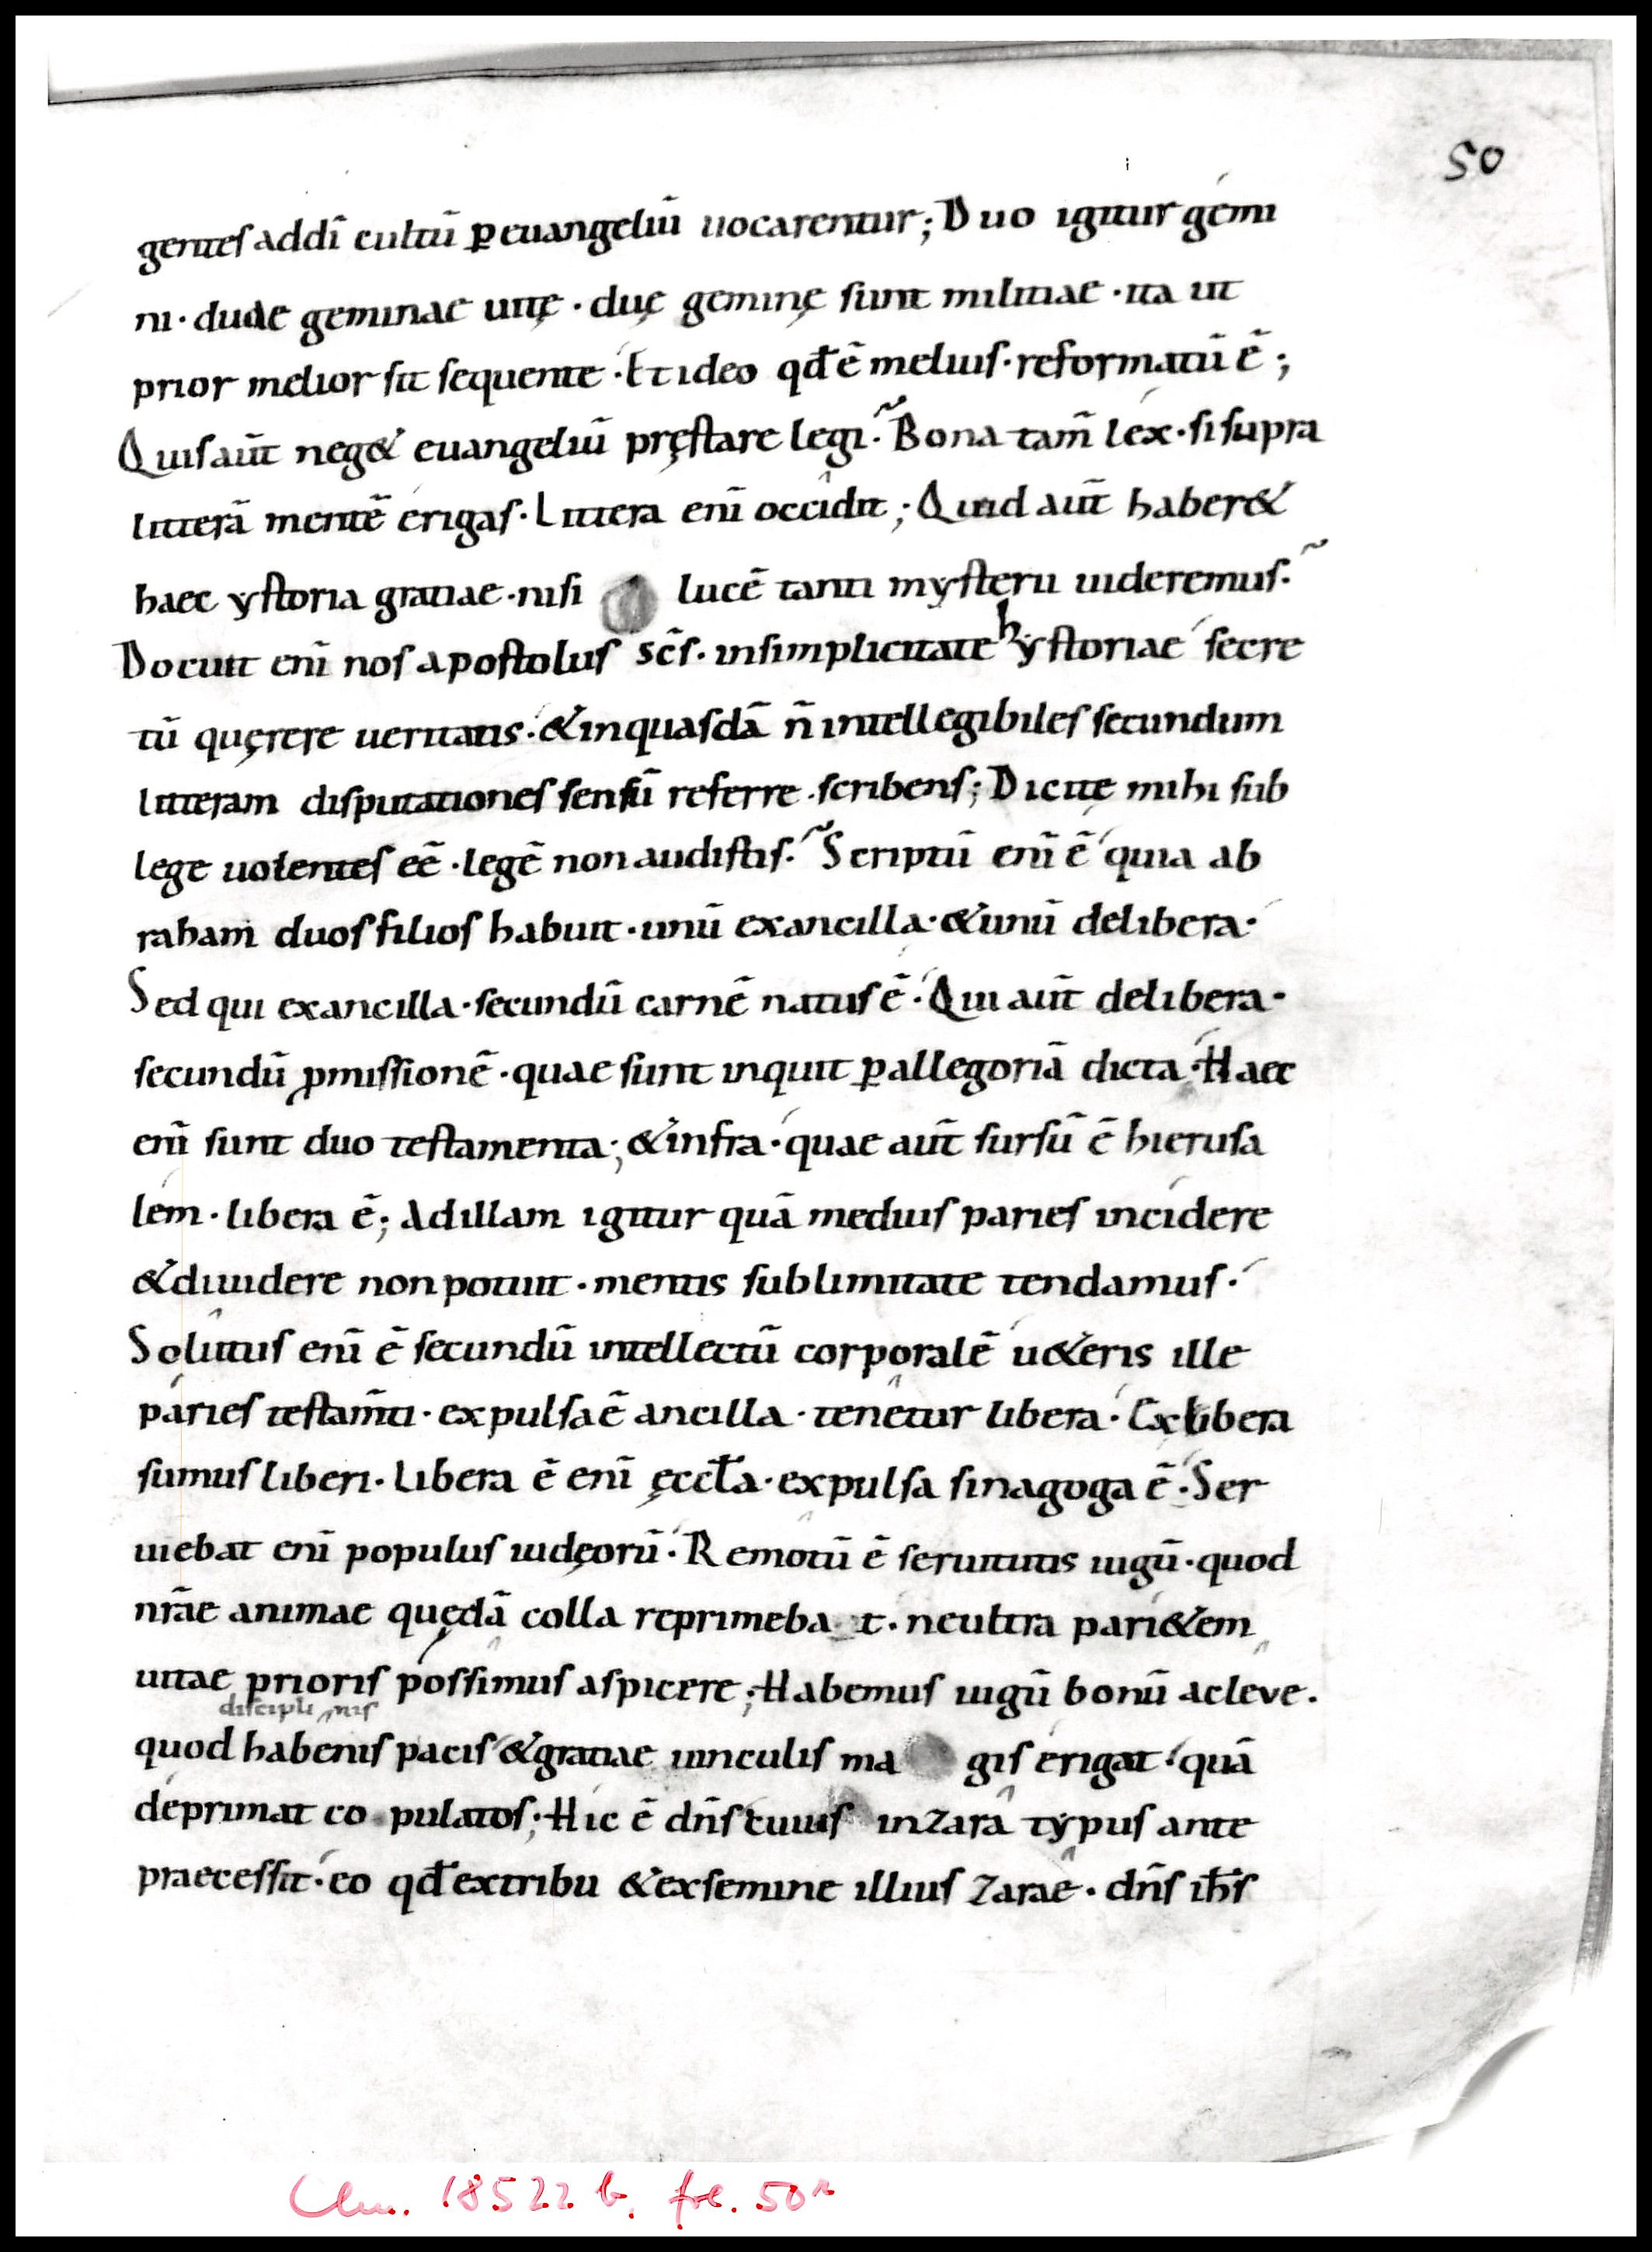 50
gentes addī cultū ꝑ euangeliū uocarentur; Duo igitur gemi
ni · duae geminae uitę · duę geminę sunt militiae · ita ut
prior melior sit sequente · Et ideo qđ ē melius · reformatū ē;
Quis aūt neg& euangeliū pręstare legi · Bona tam̄ lex · si supra
litterā mentē erigas · Littera enī occidit; Quid aūt haber&
haec ystoria gratiae · nisi lucē tanti mysterii uideremus ·
Docuit enī nos apostolus sc̄s · in simplicitate hystoriae secre
tū quęrere ueritatis · & in quasdā n̄ intellegibiles secundum
litteram disputationes sensū referre · scribens; Dicite mihi sub
lege uolentes eē · legē non audistis · Scriptū enī ē quia ab
raham duos filios habuit · unū ex ancilla · & unū de libera ·
Sed qui ex ancilla · secundū carnē natus ē · Qui aūt de libera ·
secundū ꝓmissionē · quae sunt inquit ꝑ allegoriā dicta · Haec
enī sunt duo testamenta; & infra · quae aūt sursū ē hierusa
lem · libera ē; Ad illam igitur quā medius paries incidere
& diuidere non potuit · mentis sublimitate tendamus ·
Solutus enī ē secundū intellectū corporalē u&eris ille
paries testam̄ti · expulsa ē ancilla · tenetur libera · Ex libera
sumus liberi · Libera ē enī ęccła · expulsa sinagoga ē · Ser
uiebat enī populus iudęorū · Remotū ē seruitutis iugū · quod
nr̄ae animae quędā colla reprimeba t · ne ultra pari&em
uitae prioris possimus aspicere; Habemus iugū bonū ac leve ·
disciplinis
quod habenis pacis & gratiae uinculis ma gis erigat · quā
deprimat co pulatos; Hic ē dn̄s cuius in zara typus ante
praecessit · eo qđ ex tribu & ex semine illius zarae · dn̄s ih̄s
Clm. 18522 b, fol. 50r